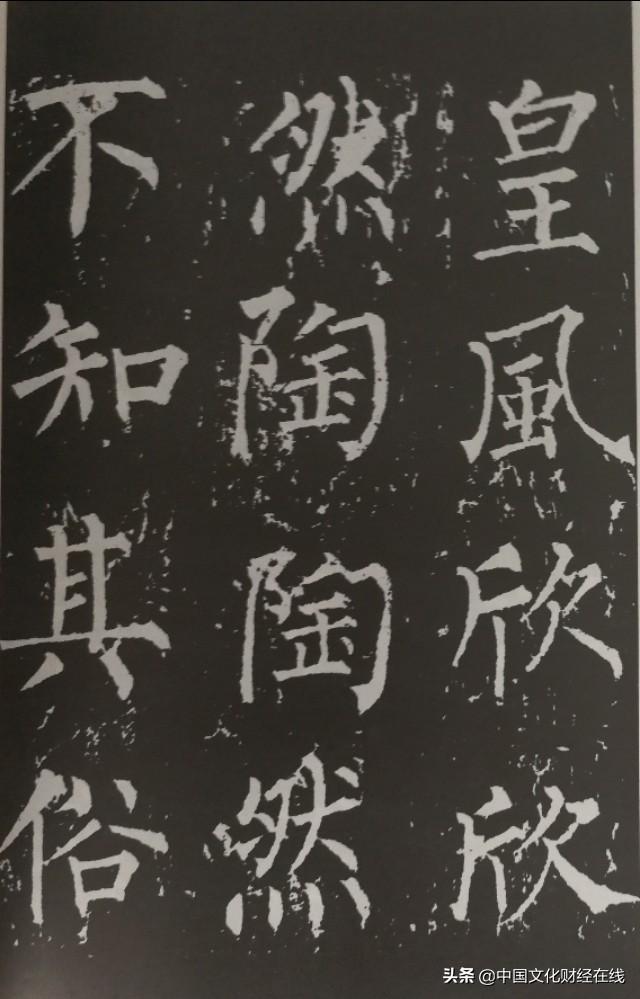 皇風欣欣
然陶陶然
不知其俗
头条 @中国文化财经在线